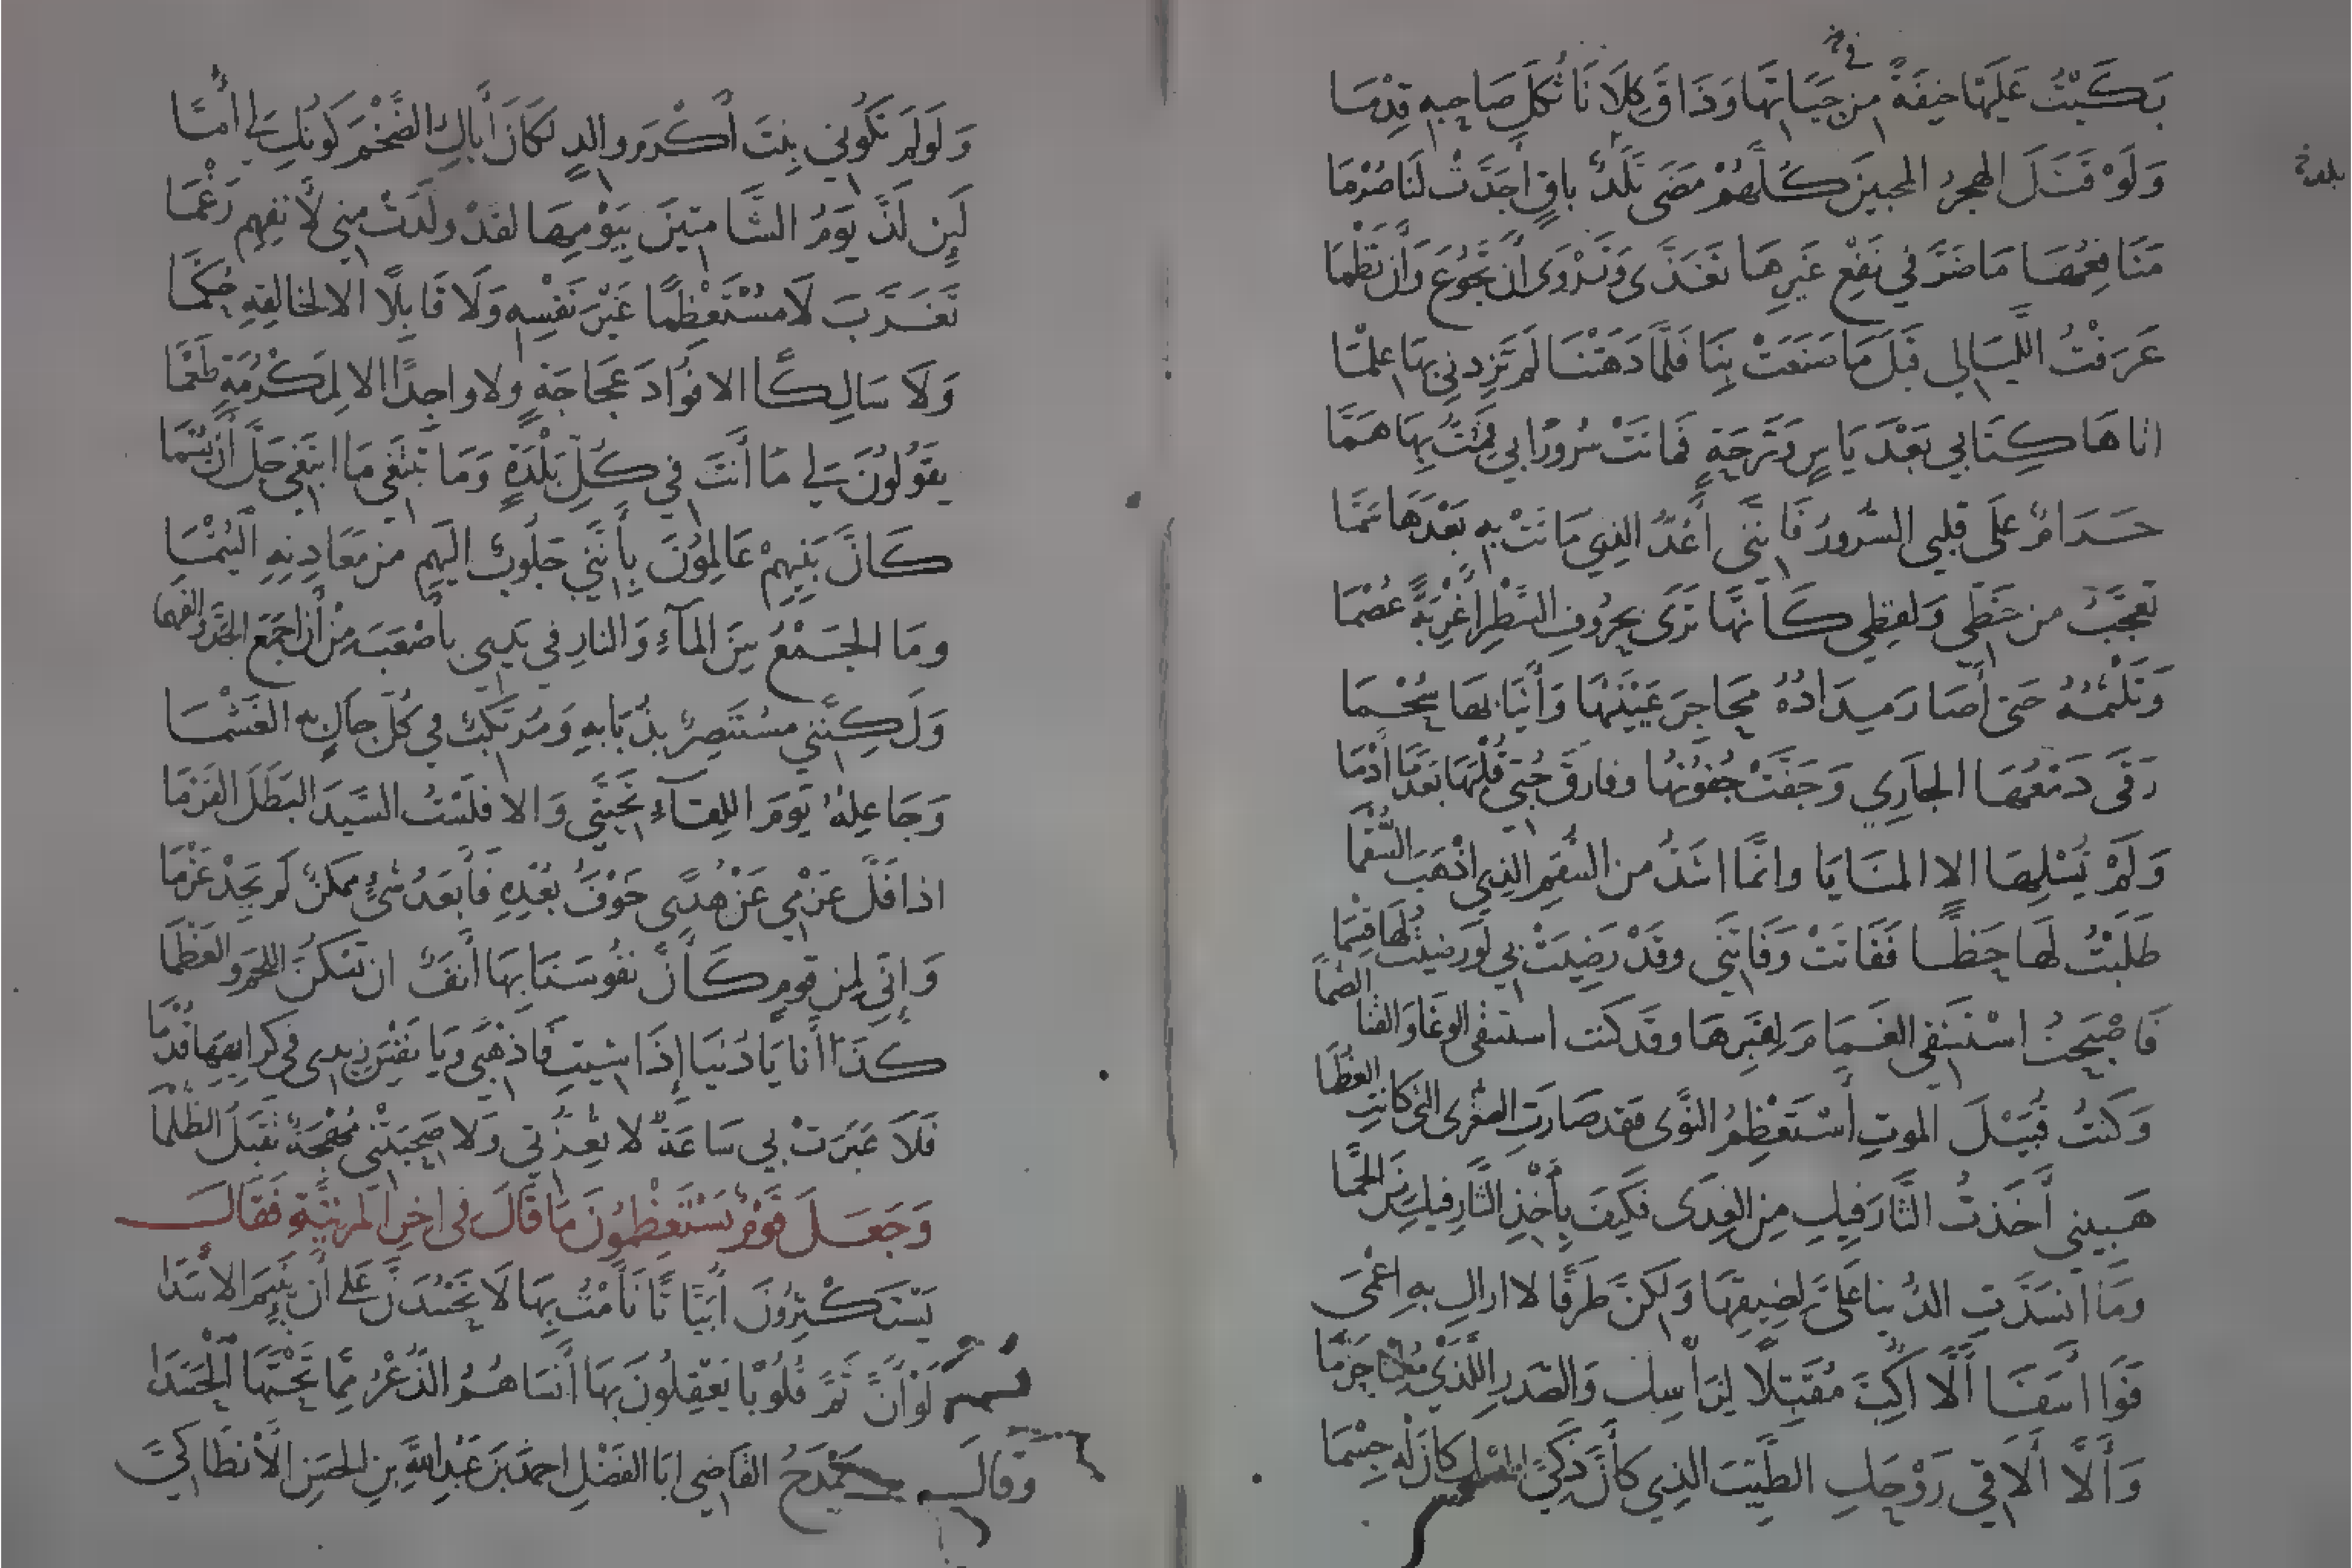 في خ
بَكَيْتُ عَلَيْهَا خِيفَةً مِن حَيَاتِهَا وَذَاقَ كِلَانَا ثُكْلَ صَاحِبِهِ قِدْمَا
بلدة خ
وَلَوْ قَتَلَ الهَجرُ المحبينَ كُلَّهُمْ مَضَى بَلَدٌ باقٍ أَجَدَّتْ لَنَا صُرْمَا
مَنَافِعُهَا مَا ضَرَّ في نَفْعِ غَيْرِهَا تَغَذَّى وَتَرْوَى أَن تَجُوعَ وَأَن تَظْمَا
عَرَفْتُ اللَّيَالي قَبْلَ مَا صَنَعَتْ بِنَا فَلَمَّا دَهَتْنَا لَمْ تَزِدني بِهَا عِلْمَا
اتاهَا كِتَابي بَعْدَ يَاسٍ وَتَرْحَةٍ فَمَاتَتْ سُرُورًا بي فَمُتُّ بِهَا هَمَّا
حَرَامٌ عَلَى قلبي السُّرُورُ فَإِنَّني أَعُدُّ الذِي مَاتَتْ بِهِ بَعْدَهَا سَمَّا
تَعَجَّبُ من خَطِّي وَلفظي كَأَنَّهَا تَرَى بحُرُوفِ السَّطْرِ أَغْرِبَةً عُصْمَا
وَتَلْثَمُهُ حَتى أَصَارَ مِدَادُهُ مَحَاجِرَ عَيْنَيْهَا وَأَنْيَابَهَا سُحْمَا
رَقَى دَمْعُهَا الجَارِي وَجَفَّتْ جُفُونُهَا وفارَقَ حُبّي قَلْبَهَا بَعْدَ مَا أَدْمَا
وَلَمْ يُسْلِهَا إلا المنَايَا وانمَّا اشَدُّ من السُّقمِ الذِي اذْهَبَ السُّقْمَا
طَلَبْتُ لَهَا حَظًّا فَفَاتَتْ وَفَاتَنَي وقَدْ رَضِيَتْ بي لَو رَضِيتُ لَهَا قِسْمَا
فَاصْبَحتُ اسْتَسْقي الغَمَامَ لِقَبْرِهَا وقد كنت استسقى الوغَا وَالقنا الصُّمَّا
وَكُنْتُ قُبَيْلَ الموتِ أَسْتَعْظِمُ النَّوَى فقد صَارَتِ الصُّغْرى التي كَانَتِ العُظْمَا
هَبِيني أَخَذتُ الثَّارَ فِيكِ مِنَ العِدَى فكَيْفَ بِأَخْذِ الثَّارِ فِيكِ مِنَ الحُمَّا
ومَا انسَدَّتِ الدُّنيا عَلَىَّ لِضِيقِهَا وَلَكِنَّ طَرفًا لا ارَاكِ بِهِ اعْمَى
فَوَا اسَفَا أَلَّا اكِبَّ مُقَبِّلًا لِرَأْسِكِ وَالصَّدرِ اللَّذَيْ مُلِئَا حَزْمَا
وَأَلَّا أُلَاقِي رَوْحَكِ الطَّيِّبَ الذِي كَأَنَّ ذَكِيَّ المِسْكِ كَانَ لَهُ جِسْمَا
وَلَو لَمْ تَكُوني بِنْتَ أَكْرَمِ والدٍ لكَانَ أَبَاكِ الضَّخْمَ كَونُكِ لي أُمَّا
لَئِن لَذَّ يَوْمُ الشَّامتِينَ بِيَوْمِهَا لقدْ ولَدَتْ مِني لأَنفِهِم رَغْمَا
تَغَرَّبَ لَا مُسْتَعْظِمًا غَيْرَ نَفْسِهِ وَلَا قَابِلًا الا لخالِقِهِ حُكْمَا
وَلَا سَالِكًا الا فُوَادَ عَجَاجَةٍ ولا واجِدًا الا لِمَكْرُمَةٍ طَعْمَا
يَقُولُونَ لي مَا أَنتَ في كُلِّ بَلْدَةٍ وَمَا تَبْتَغي مَا ابتَغي جَلَّ أَن يُسْمَا
كَأَنَّ بَنِيهِمْ عَالِمُونَ بِأَنَّني جَلُوبٌ اليهِم من مَعَادِنِهِ اليُتْمَا
ومَا الجَمْعُ بَينَ المآءِ وَالنارِ في يَدي بِأَصْعَبَ مِنْ أَن اجمَعَ الجَدَّ وَالفهما
وَلَكِنَّني مستَنصِرٌ بذُبَابِهِ وَمُرتَكِبٌ في كُلِّ حَالٍ بِهِ الغَشْمَا
وَجَاعِلُهُ يَومَ اللِّقَآءِ تَحِيَّتي وَالا فلَسْتُ السَّيدَ البَطَلَ القَرْمَا
اذا فَلَّ عَزْمِي عَنْ مُدًى خَوْفُ بُعْدِهِ فَأَبعَدُ شيْءٍ ممكنٌ لَم يَجِدْ عَزْمَا
وَإِنّي لمِن قومٍ كَأَنَّ نفُوسَنَا بِهَا أَنَفٌ ان تَسْكُنَ اللحمَ والعَظْمَا
كَذَا أَنا يَا دُنيَا إِذَا شِيتِ فَاذْهَبِي وَيَا نفْسِ زيدي في كرَايهِهَا قُدْمَا
فَلَا عَبَرَتْ بي سَاعَةٌ لا تُعِزُّني وَلا صَحِبَتْني مُهْجَةٌ تَقْبَلُ الظُّلْمَا
وَجَعَلَ قَوْمٌ يَسْتَعْظِمُونَ مَا قَالَ في اخِرِ المرثِيَّةِ فَقَالَ
يَسْتَكْثِرُونَ أُبَيَّاتًا نَأَمْتُ بِهَا لَا تَحْسُدَنَّ عَلى أَن يَنْئِمَ الاسَدَا
لَوْ أَنَّ ثَمَّ قُلُوبًا يَعْقِلُونَ بِهَا أَنسَاهُمُ الذُّعْرُ مِمَّا تَحْتَهَا الحَسَدَا
وَقَالَ يَمْدَحُ القَاضِي ابَا الفَضْلِ احمدَ بنَ عَبْدِ اللهِ بنِ الحسَنِ الأَنطَاكيَّ